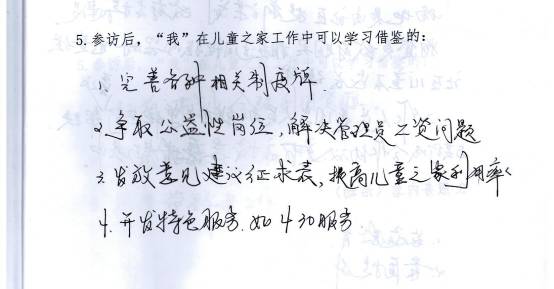 5.参访后，“我”在儿童之家工作中可以学习借鉴的：
1、完善各种相关制度牌.
2.争取公益性岗位，解决管理员工资问题
3.发放意见建议征求表，提高儿童之家利用率
4.开发特色服务.如430服务